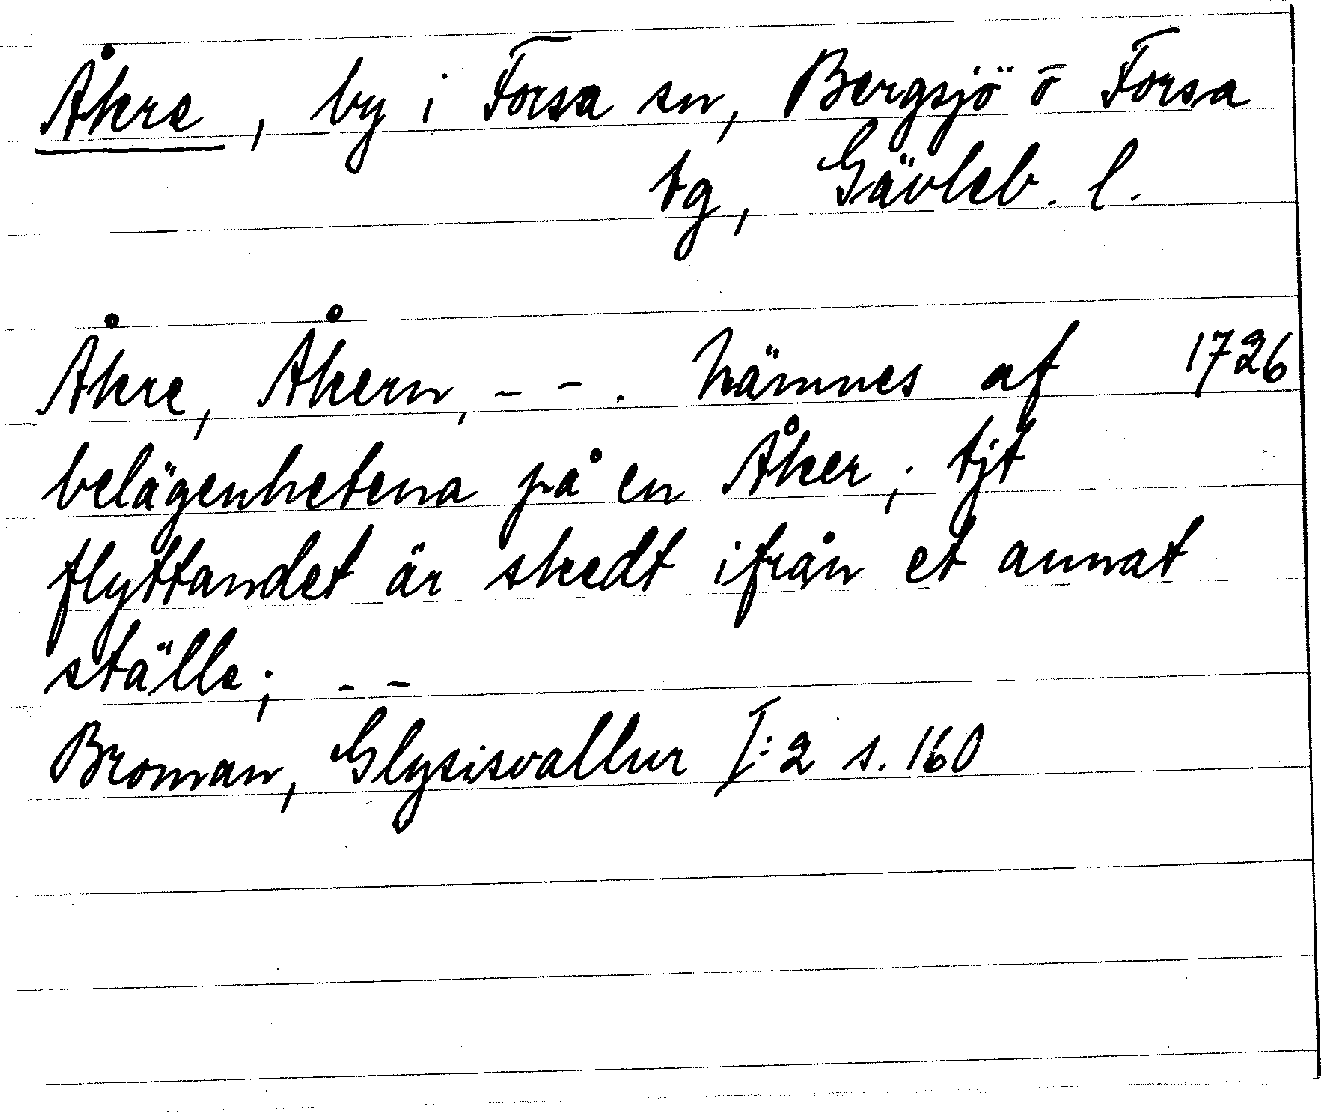 Åkre, by i Forsa sn, Bergsjö o Forsa
tg, Gävleb. l.
Åkre, Åkern, - - . Nämnes af 1726
belägenhetena på en Åker; tjt
flyttandet är skedt ifrån et annat
ställe; - -
Broman, Glysisvallur I:2 s. 160